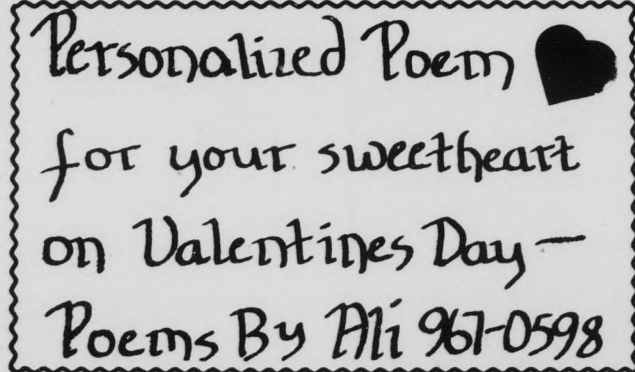 Personalized Poem
for your sweetheart
on Valentines Day —
Poems By Ali 967-0598